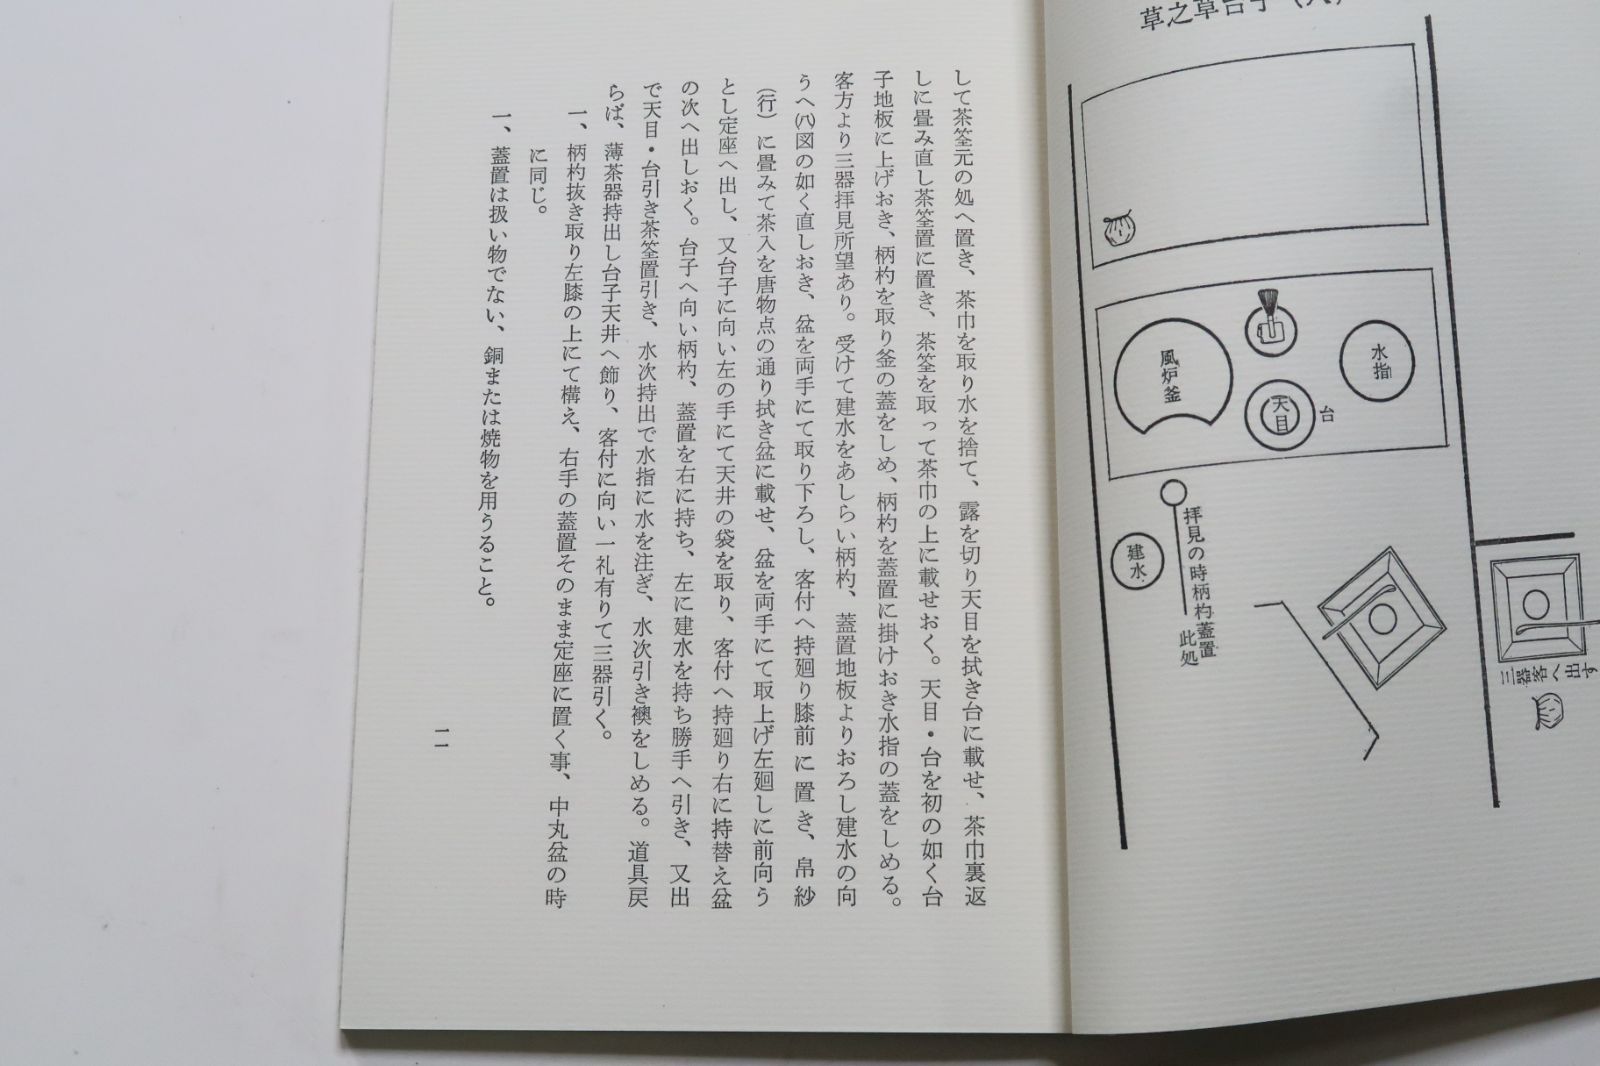 草之草台子（八）
水指
風炉釜
天目
台
建水
拝見の時柄杓蓋置
此処
三器客へ出す
して茶筌元の処へ置き、茶巾を取り水を捨て、露を切り天目を拭き台に載せ、茶巾裏返
しに畳み直し茶筌置に置き、茶筌を取って茶巾の上に載せおく。天目・台を初の如く台
子地板に上げおき、柄杓を取り釜の蓋をしめ、柄杓を蓋置に掛けおき水指の蓋をしめる。
客方より三器拝見所望あり。受けて建水をあしらい柄杓、蓋置地板よりおろし建水の向
うへ㈧図の如く直しおき、盆を両手にて取り下ろし、客付へ持廻り膝前に置き、帛紗
（行）に畳みて茶入を唐物点の通り拭き盆に載せ、盆を両手にて取上げ左廻しに前向う
とし定座へ出し、又台子に向い左の手にて天井の袋を取り、客付へ持廻り右に持替え盆
の次へ出しおく。台子へ向い柄杓、蓋置を右に持ち、左に建水を持ち勝手へ引き、又出
で天目・台引き茶筌置引き、水次持出で水指に水を注ぎ、水次引き襖をしめる。道具戻
らば、薄茶器持出し台子天井へ飾り、客付に向い一礼有りて三器引く。
一、柄杓抜き取り左膝の上にて構え、右手の蓋置そのまま定座に置く事、中丸盆の時
に同じ。
一、蓋置は扱い物でない、銅または焼物を用うること。
一一